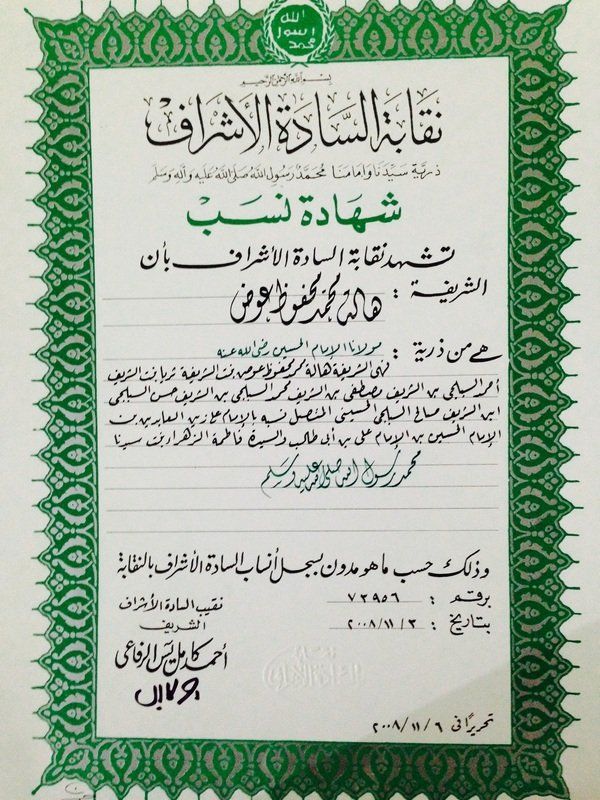 الله
رسول
محمد
بسم الله الرحمن الرحيم
نقابة السادة الأشراف
ذرية سيدنا وإمامنا محمد رسول الله صلى الله عليه وآله وسلم
شهادة نسب
تشهد نقابة السادة الأشراف بأن
الشريفة : هالة محمد محفوظ عوض
هى من ذرية : مولانا الإمام الحسين رضى الله عنه
فهى الشريفة هالة محمد محفوظ عوض بنت الشريفة ثريا بنت الشريف
أحمد السليمى بن الشريف مصطفى بن الشريف محمد السليمى بن الشريف حسن السليمى
ابن الشريف صالح السليمى الحسينى المتصل نسبه بالإمام على زين العابدين بن
الإمام الحسين بن الإمام على بن أبى طالب والسيدة فاطمة الزهراء بنت سيدنا
محمد رسول الله صلى الله عليه وسلم
وذلك حسب ما هو مدون بسجل أنساب السادة الأشراف بالنقابة
برقم : ٧٣٩٥٦
بتاريخ : ٢٠٠٨/١١/٣
نقيب السادة الأشراف
الشريف
أحمد كامل يس الرفاعى
تحريرًا فى ٢٠٠٨/١١/٦